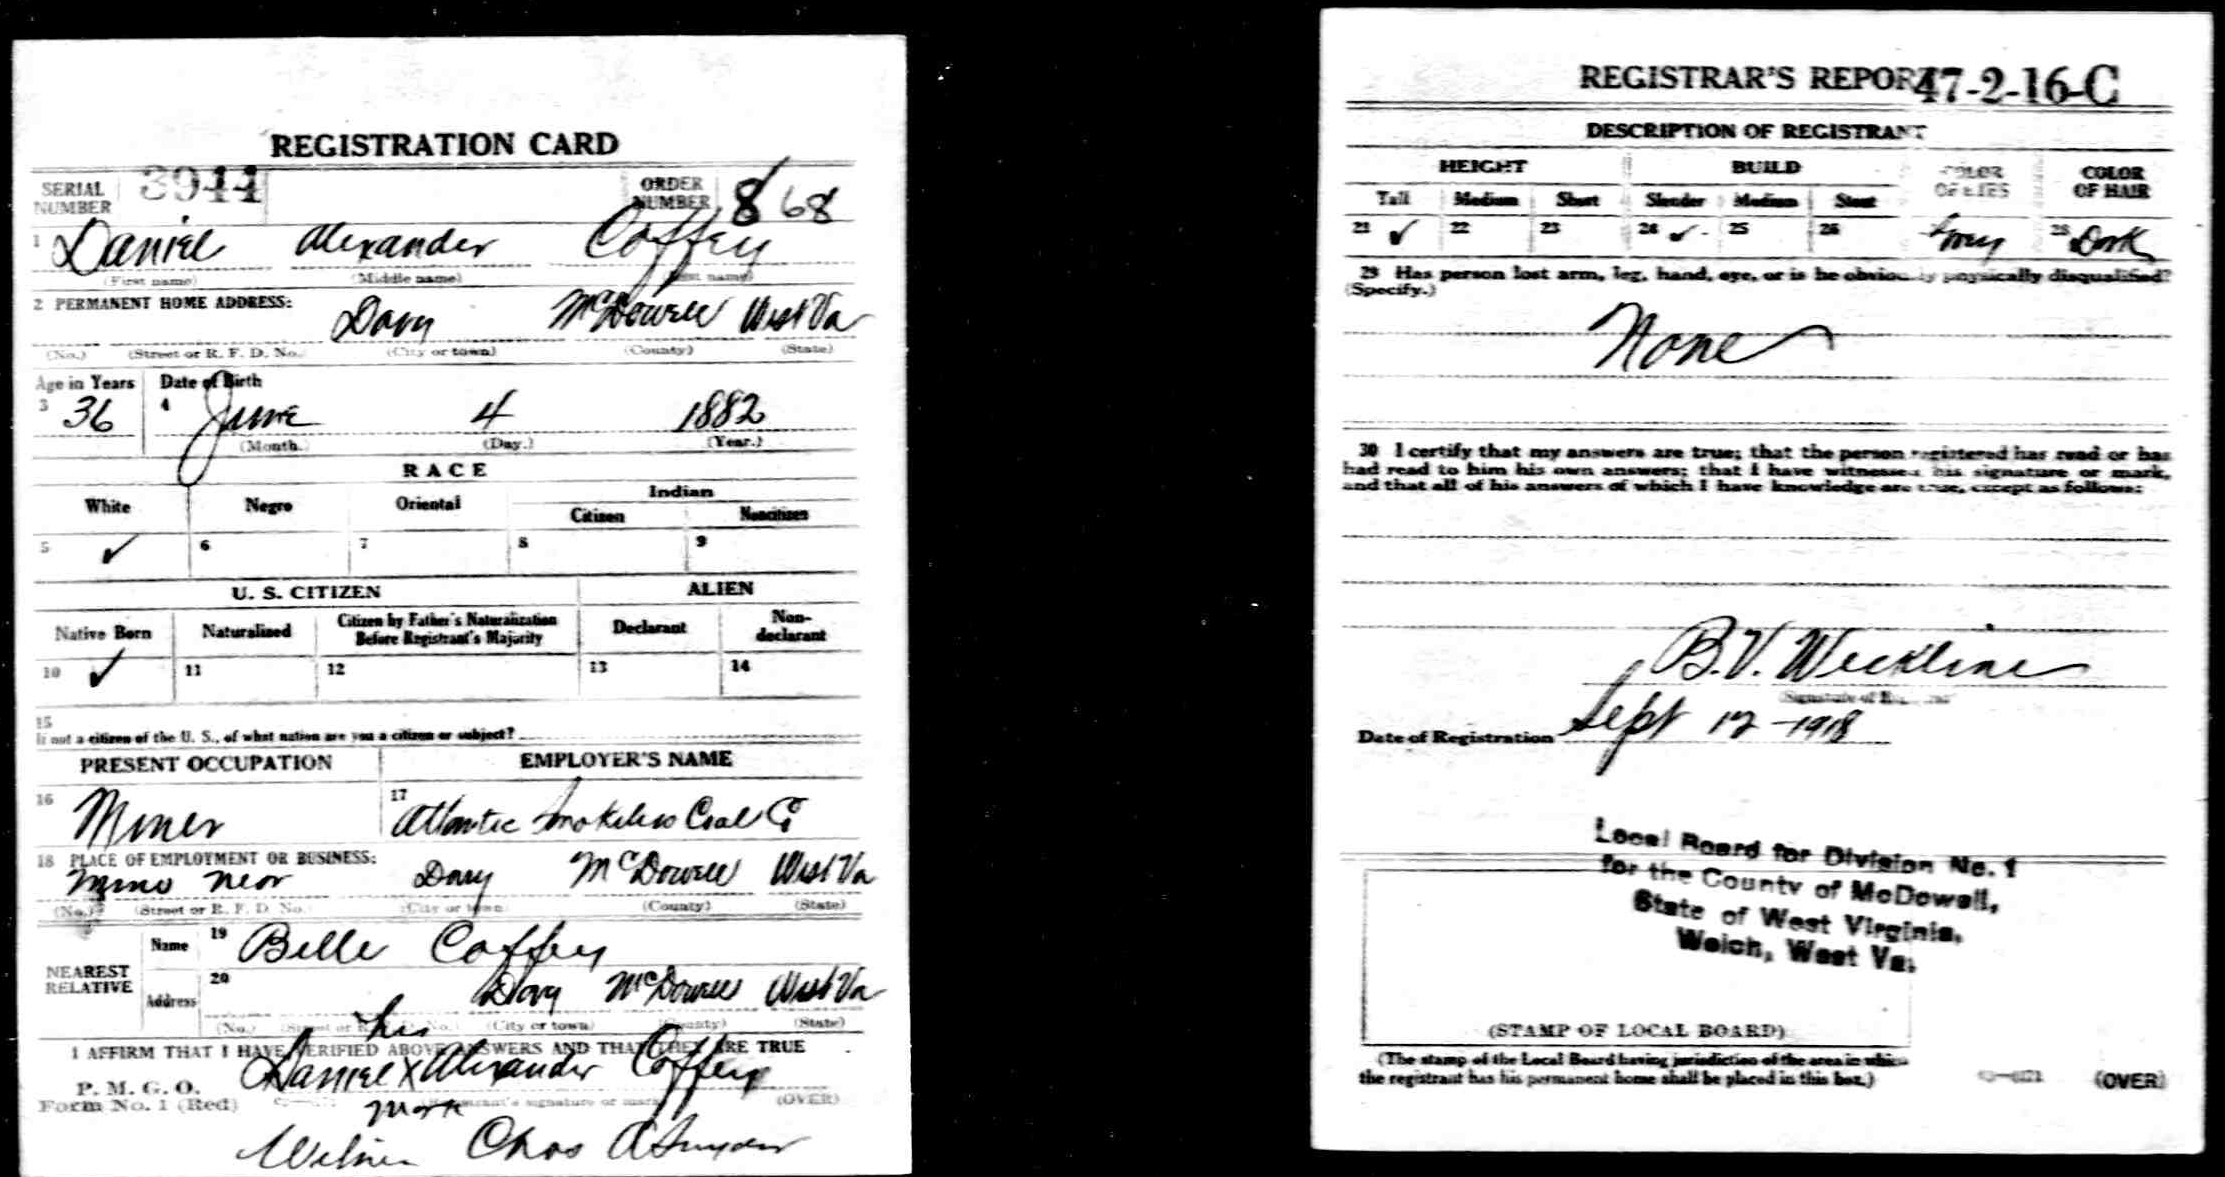 REGISTRATION CARD
SERIAL NUMBER 3944 ORDER NUMBER 868
1 Daniel Alexander Coffey
(First name) (Middle name) (Last name)
2 PERMANENT HOME ADDRESS:
Davy McDowell West Va
(No.) (Street or R. F. D. No.) (City or town) (County) (State)
Age in Years Date of Birth
3 36 4 June 4 1882
(Month.) (Day.) (Year.)
RACE
White Negro Oriental Indian
Citizen Noncitizen
5 ✓ 6 7 8 9
U. S. CITIZEN ALIEN
Native Born Naturalized Citizen by Father's Naturalization Before Registrant's Majority Declarant Non-declarant
10 ✓ 11 12 13 14
15
If not a citizen of the U. S., of what nation are you a citizen or subject?
PRESENT OCCUPATION EMPLOYER'S NAME
16 Miner 17 Atlantic Smokeless Coal Co
18 PLACE OF EMPLOYMENT OR BUSINESS:
Mine near Davy McDowell West Va
(No.) (Street or R. F. D. No.) (City or town) (County) (State)
NEAREST RELATIVE Name 19 Belle Coffey
Address 20 Davy McDowell West Va
(No.) (Street or R. F. D. No.) (City or town) (County) (State)
his
I AFFIRM THAT I HAVE VERIFIED ABOVE ANSWERS AND THAT THEY ARE TRUE
P. M. G. O.
Form No. 1 (Red)
Daniel X Alexander Coffey
mark
(Registrant's signature or mark) (OVER)
Witness Chas A Snyder
REGISTRAR'S REPORT
47-2-16-C
DESCRIPTION OF REGISTRANT
HEIGHT BUILD COLOR OF EYES COLOR OF HAIR
Tall Medium Short Slender Medium Stout
21 ✓ 22 23 24 ✓ 25 26 Grey 28 Dark
29 Has person lost arm, leg, hand, eye, or is he obviously physically disqualified?
(Specify.)
None
30 I certify that my answers are true; that the person registered has read or has
had read to him his own answers; that I have witnessed his signature or mark,
and that all of his answers of which I have knowledge are true, except as follows:
B. V. Weekline
(Signature of Registrar)
Date of Registration Sept 12-1918
Local Board for Division No. 1
for the County of McDowell,
State of West Virginia,
Welch, West Va.
(STAMP OF LOCAL BOARD)
(The stamp of the Local Board having jurisdiction of the area in which
the registrant has his permanent home shall be placed in this box.)
(OVER)